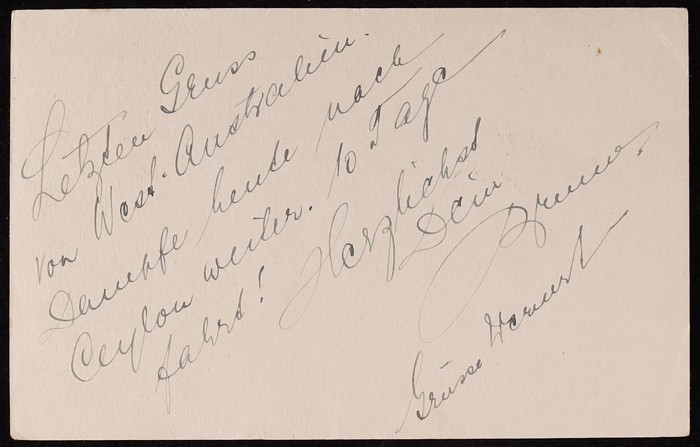 Letzten Gruss
von West-Australien.
Dampfe heute nach
Ceylon weiter. 10 Tage
fahrt! Herzlichst
Dein
Bruno.
Grüsse